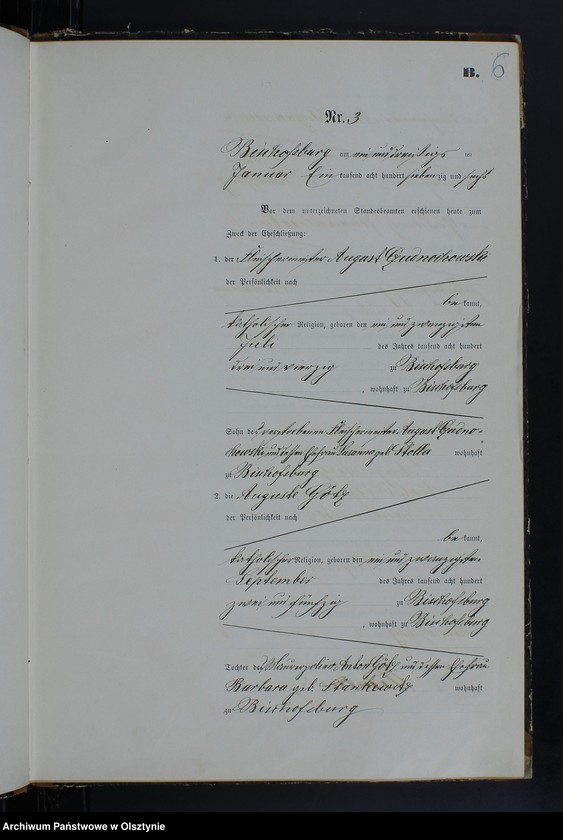 B. 6
Nr. 3
Bischofsburg am ein und dreißigs ten
Januar Ein tausend acht hundert sieben zig und sechs
Vor dem unterzeichneten Standesbeamten erschienen heute zum
Zweck der Eheschließung:
1. der Fleischermeister August Gudnochowski
der Persönlichkeit nach
be kannt,
katholischer Religion, geboren den ein und zwanzigsten
Juli des Jahres tausend acht hundert
drei und vierzig zu Bischofsburg
, wohnhaft zu Bischofsburg
Sohn des verstorbenen Fleischermeister August Gudno-
chowski und dessen Ehefrau Susanna geb. Stolla wohnhaft
zu Bischofsburg
2. die Auguste Götz
der Persönlichkeit nach
be kannt,
katholischer Religion, geboren den ein und zwanzigsten
September des Jahres tausend acht hundert
zwei und fünfzig zu Bischofsburg
, wohnhaft zu Bischofsburg
Tochter des Maurerpolier Anton Götz und dessen Ehefrau
Barbara geb. Stankewitz wohnhaft
zu Bischofsburg
Archiwum Państwowe w Olsztynie